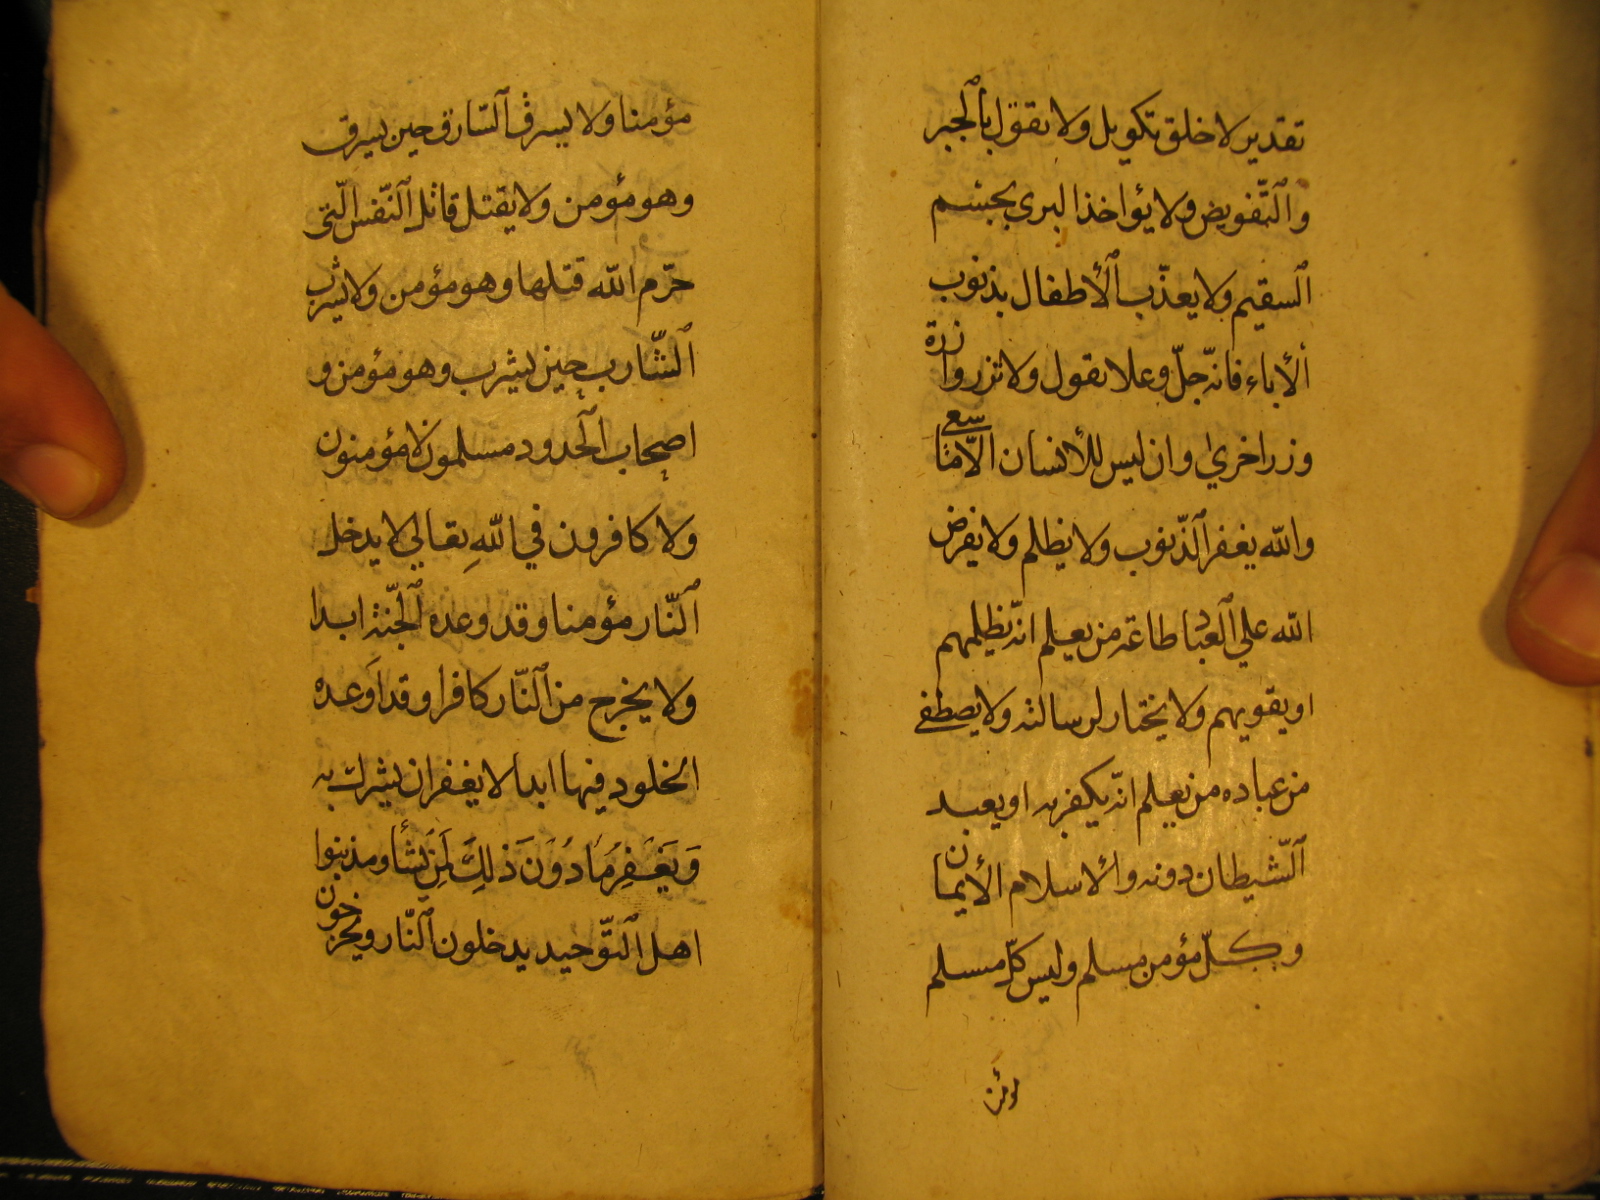 تقدير لا خلق تكويل ولا نقول بالجبر
والتّفويض ولا يؤاخذ البرى بجسم
السقيم ولا يعذّب الأطفال بذنوب
الأباء فانّه جلّ وعلا يقول ولا تزر وازرة
وزر اخري وان ليس للأنسان الّا ما سعي
والله يغفر الذّنوب ولا يظلم ولا يفرض
الله علي العباد طاعة من يعلم انّه يظلمهم
او يقويهم ولا يختار لرسالته ولا يصطفي
من عباده من يعلم انّه يكفر به او يعبد
الشّيطان دونه والاسلام الأيمان
وكلّ مؤمن مسلم وليس كلّ مسلم
مؤمن
مؤمنا ولا يسرق السّارق حين يسرق
وهو مؤمن ولا يقتل قاتل النّفس الّتي
حرّم الله قتلها وهو مؤمن ولا يشرب
الشّارب حين يشرب وهو مؤمن و
اصحاب الحدود مسلمون لا مؤمنون
ولا كافرون في اللهِ تعالي لا يدخل
النّار مؤمنا وقد وعده الجنّة ابدا
ولا يخرج من النّار كافرا وقد اَوعده
الخلود فيها ابدا لا يغفر ان يشرك به
وَيَغْفِرُ مَا دُوْنَ ذٰلِكَ لَمِنْ يشأ ومذنبوا
اهل التّوحيد يدخلون النّار ويخرجون